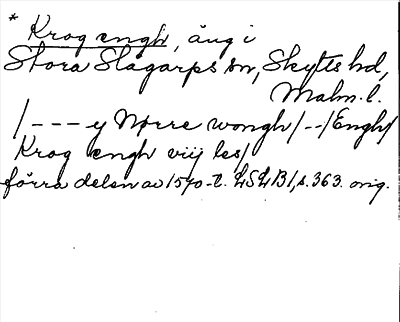 * Krog engh, äng i
Stora Slågarps sn, Skytts hd,
Malm. l.
/ - - - y Nørre wongh / - - / Engh /
Krog engh viij les /
förra delen av 1570-t. LSLB 1, s. 363. orig.